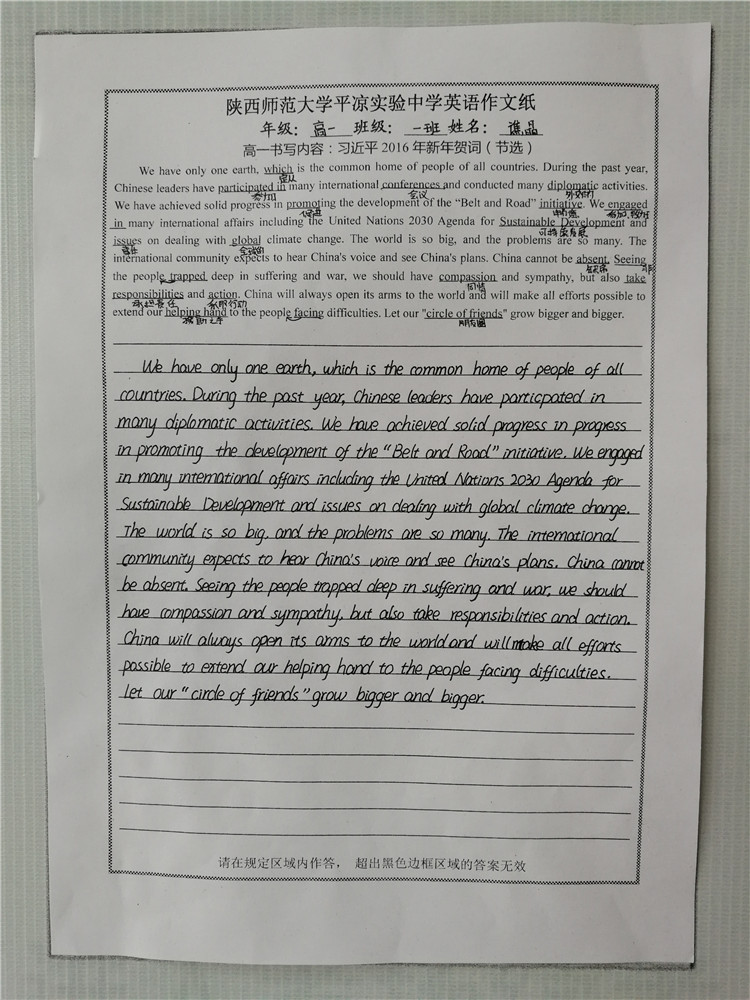 陕西师范大学平凉实验中学英语作文纸
年级：高一 班级：一班 姓名：谯晶
高一书写内容：习近平 2016 年新年贺词（节选）
We have only one earth, which is the common home of people of all countries. During the past year,
定从
Chinese leaders have participated in many international conferences and conducted many diplomatic activities.
参加 会议 外交的
We have achieved solid progress in promoting the development of the “Belt and Road” initiative. We engaged
促进 参加,
in many international affairs including the United Nations 2030 Agenda for Sustainable Development and
可持续发展
issues on dealing with global climate change. The world is so big, and the problems are so many. The
全球的
international community expects to hear China's voice and see China's plans. China cannot be absent. Seeing
缺席
the people trapped deep in suffering and war, we should have compassion and sympathy, but also take
同情
responsibilities and action. China will always open its arms to the world and will make all efforts possible to
承担责任 采取行动
extend our helping hand to the people facing difficulties. Let our "circle of friends" grow bigger and bigger.
援助之手 朋友圈
We have only one earth, which is the common home of people of all
countries. During the past year, Chinese leaders have particpated in
many diplomatic activities. We have achieved solid progress in progress
in promoting the development of the “Belt and Road” initiative. We engaged
in many international affairs including the United Nations 2030 Agenda for
Sustainable Development and issues on dealing with global climate change.
The world is so big, and the problems are so many. The international
community expects to hear China's voice and see China's plans. China cannot
be absent. Seeing the people trapped deep in suffering and war, we should
have compassion and sympathy, but also take responsibilities and action.
China will always open its arms to the world and will make all efforts
possible to extend our helping hand to the people facing difficulties.
Let our “circle of friends” grow bigger and bigger.
请在规定区域内作答， 超出黑色边框区域的答案无效